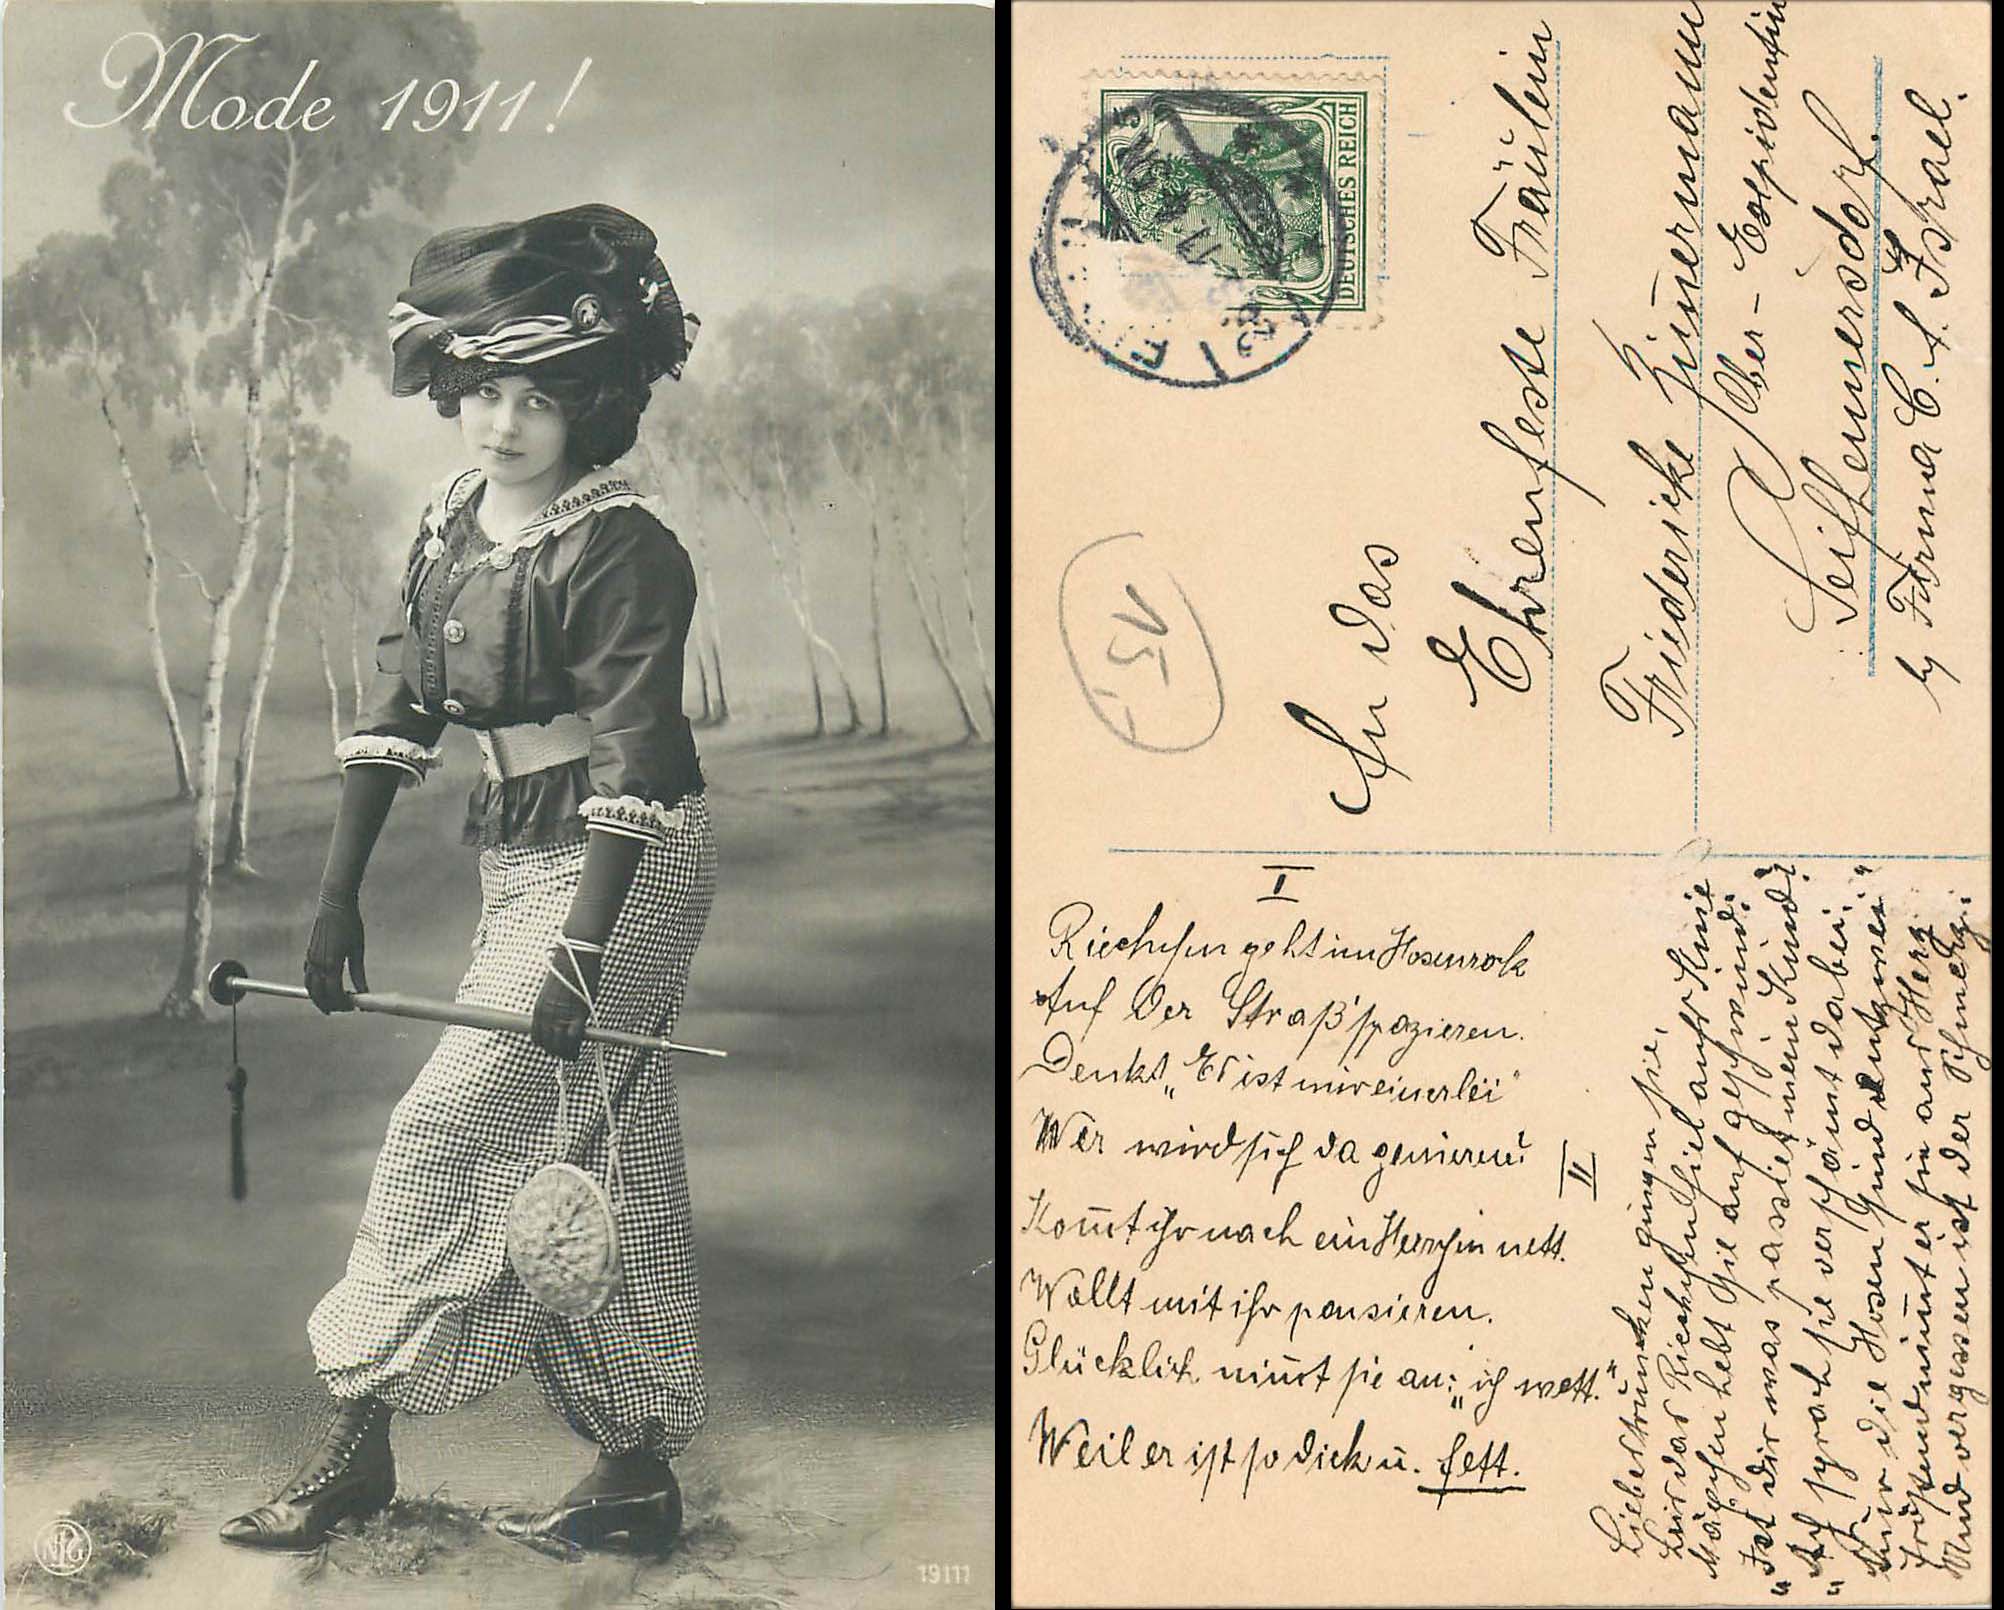 Mode 1911!
NPG
19111
DEUTSCHES REICH
5
15,-
An das
Ehrenfeste Fräulein
Friedericke Zim̄ermann
Ober-Expidentin
Seifhennersdorf.
by Firma C. A. Israel.
I
Riechchen geht im Hosenrock
Auf der Straß' spazieren.
Denkt „Es ist mir einerlei"
Wer wird sich da genieren!
Kom̄t ihr nach ein Herrchen nett.
Wollt mit ihr pousieren.
Glücklich nim̄t sie an: „ich wett."
Weil er ist so dick u. fett.
II
Liebestrunken gingen sie,
Leis das Riechchen fiel aufs Knie
Mäxchen hebt sie auf geschwind:
„Ist dir was passiert mein Kind?
„Ach sprach sie verschämt dabei:
Nur die Hosen sind entzwei"
Tröstend nim̄t er sie ans Herz
Und vergessen ist der Schmerz.